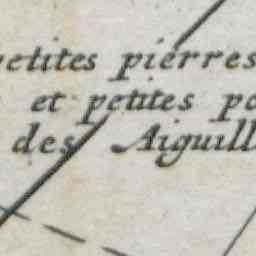 petites pierres
et petites po
des Aiguill